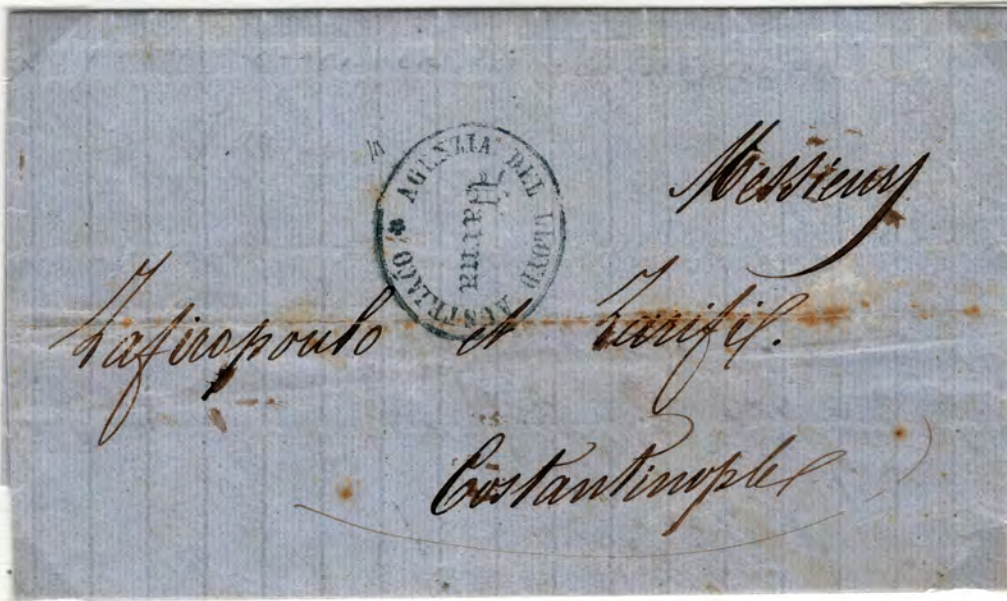 AGENZIA DEL LLOYD AUSTRIACO
Varna
Messieurs
Zafiropoulo et Zarifi.
Costantinople